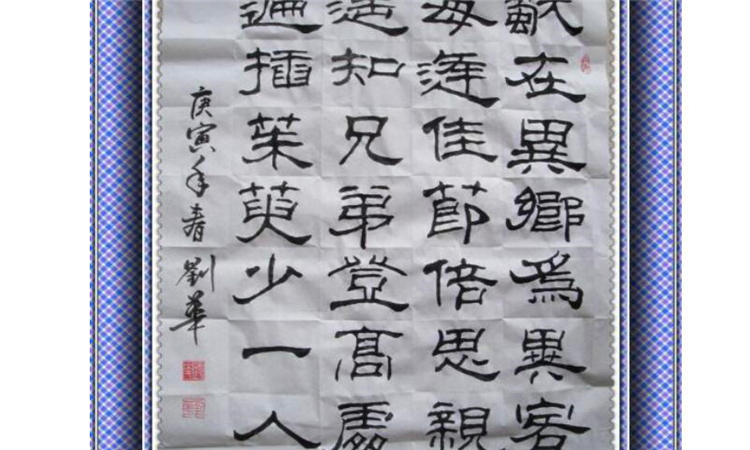 在異鄉爲異客
每逢佳節倍思親
遥知兄弟登高處
遍插茱萸少一人
庚寅年春 劉華